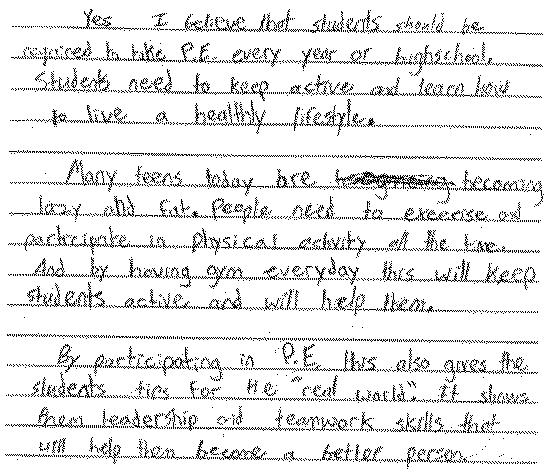 Yes I believe that students should be
required to take P.E. every year or highschool.
Students need to keep active and learn how
to live a healthly lifestyle.
Many teens today are becoming
lazy and fat. People need to excerise and
participate in physical activity all the time.
And by having gym everyday this will keep
students active and will help them.
By participating in P.E this also gives the
students tips for the "real world". It shows
them leadership and teamwork skills that
will help them become a better person.